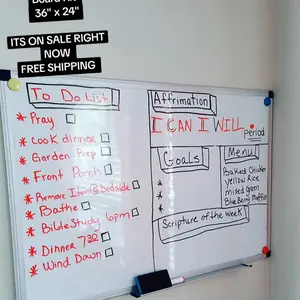 36" x 24"
ITS ON SALE RIGHT
NOW
FREE SHIPPING
To Do List
* Pray
* Cook dinner
* Garden Prep
* Front Porch
* Bathe
* Bible Study 6pm
* Dinner 7
* Wind Down
Affrimation
I CAN I WILL period
Goals
*
*
*
Menu
Baked Chicken
yellow Rice
mixed green
BlueBerry Muffins
Scripture of the Week